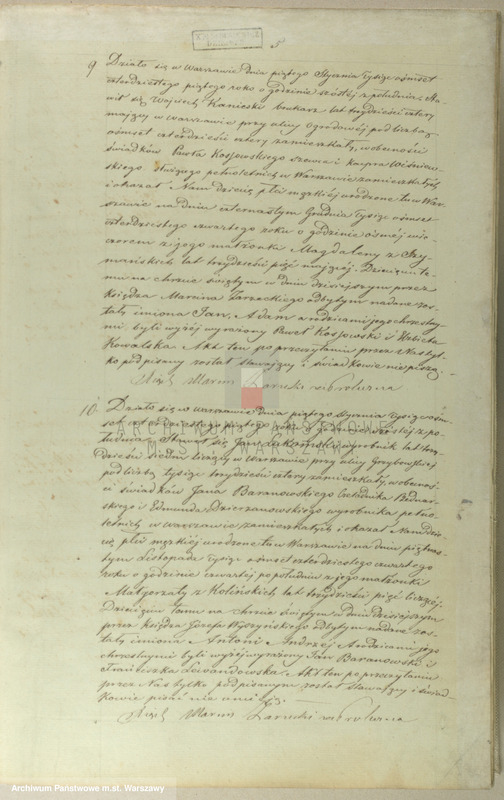 5
9 Działo się w Warszawie dnia piątego Stycznia tysiąc ośmset
czterdziestego piątego roku o godzinie szóstej z południa. Sta-
wił się Wojciech Kaniecki brukarz lat trzydzieści cztery
mający w Warszawie przy ulicy Ogrodowej pod liczbą
ośmset czterdzieści cztery zamieszkały, w obecności
świadków Pawła Kossowskiego szewca i Kacpra Wiśniew-
skiego służącego pełnoletnich w Warszawie zamieszkałych
i okazał Nam Dziecię płci męzkiej urodzone tu w War-
szawie na dniu czternastym Grudnia tysiąc ośmset
czterdziestego czwartego roku o godzinie ósmej wie-
czorem z jego małżonki Magdaleny z Szy-
mańskich lat trzydzieści pięć mającej. Dziecięciu te-
mu na chrzcie świętym w dniu dzisiejszym przez
księdza Marcina Zarzeckiego odbytym nadane zos-
tały imiona Jan, Adam a rodzicami jego chrzestny-
mi byli wyżej wyrażony Paweł Kossowski i
Kowalska. Akt ten po przeczytaniu przez Nas tyl-
ko podpisany został stawający i świadkowie nie piszą.
10. Działo się w Warszawie dnia piątego Stycznia tysiąc ośm-
set czterdziestego piątego roku o godzinie szóstej z po-
łudnia. Stawił się Jan wyrobnik lat trzy-
dzieści siedm liczący w Warszawie przy ulicy Grzybowskiej
pod liczbą tysiąc trzydzieści cztery zamieszkały, w obecnoś-
ci świadków Jana Baranowskiego Czeladnika Bednar-
skiego i Edmunda Dzierzanowskiego wyrobnika pełno-
letnich w Warszawie zamieszkałych i okazał Nam dzie-
cię płci męzkiej urodzone tu w Warszawie na dniu piętnas-
tym Listopada tysiąc ośmset czterdziestego czwartego
roku o godzinie czwartej po południu z jego małżonki
Małgorzaty z Kolińskich lat trzydzieści pięć liczącej.
Dziecięciu temu na chrzcie świętym w dniu dzisiejszym
przez księdza Józefa Wyszyńskiego odbytym nadane zos-
tały imiona Antoni Andrzej a rodzicami jego
chrzestnymi byli wyżej wyrażony Jan Baranowski i
Franciszka Lewandowska. Akt ten po przeczytaniu
przez Nas tylko podpisanym został stawający i świad-
kowie pisać nie umieją.
ARCHIWUM PAŃSTWOWE
W WARSZAWIE
Archiwum Państwowe m.st. Warszawy